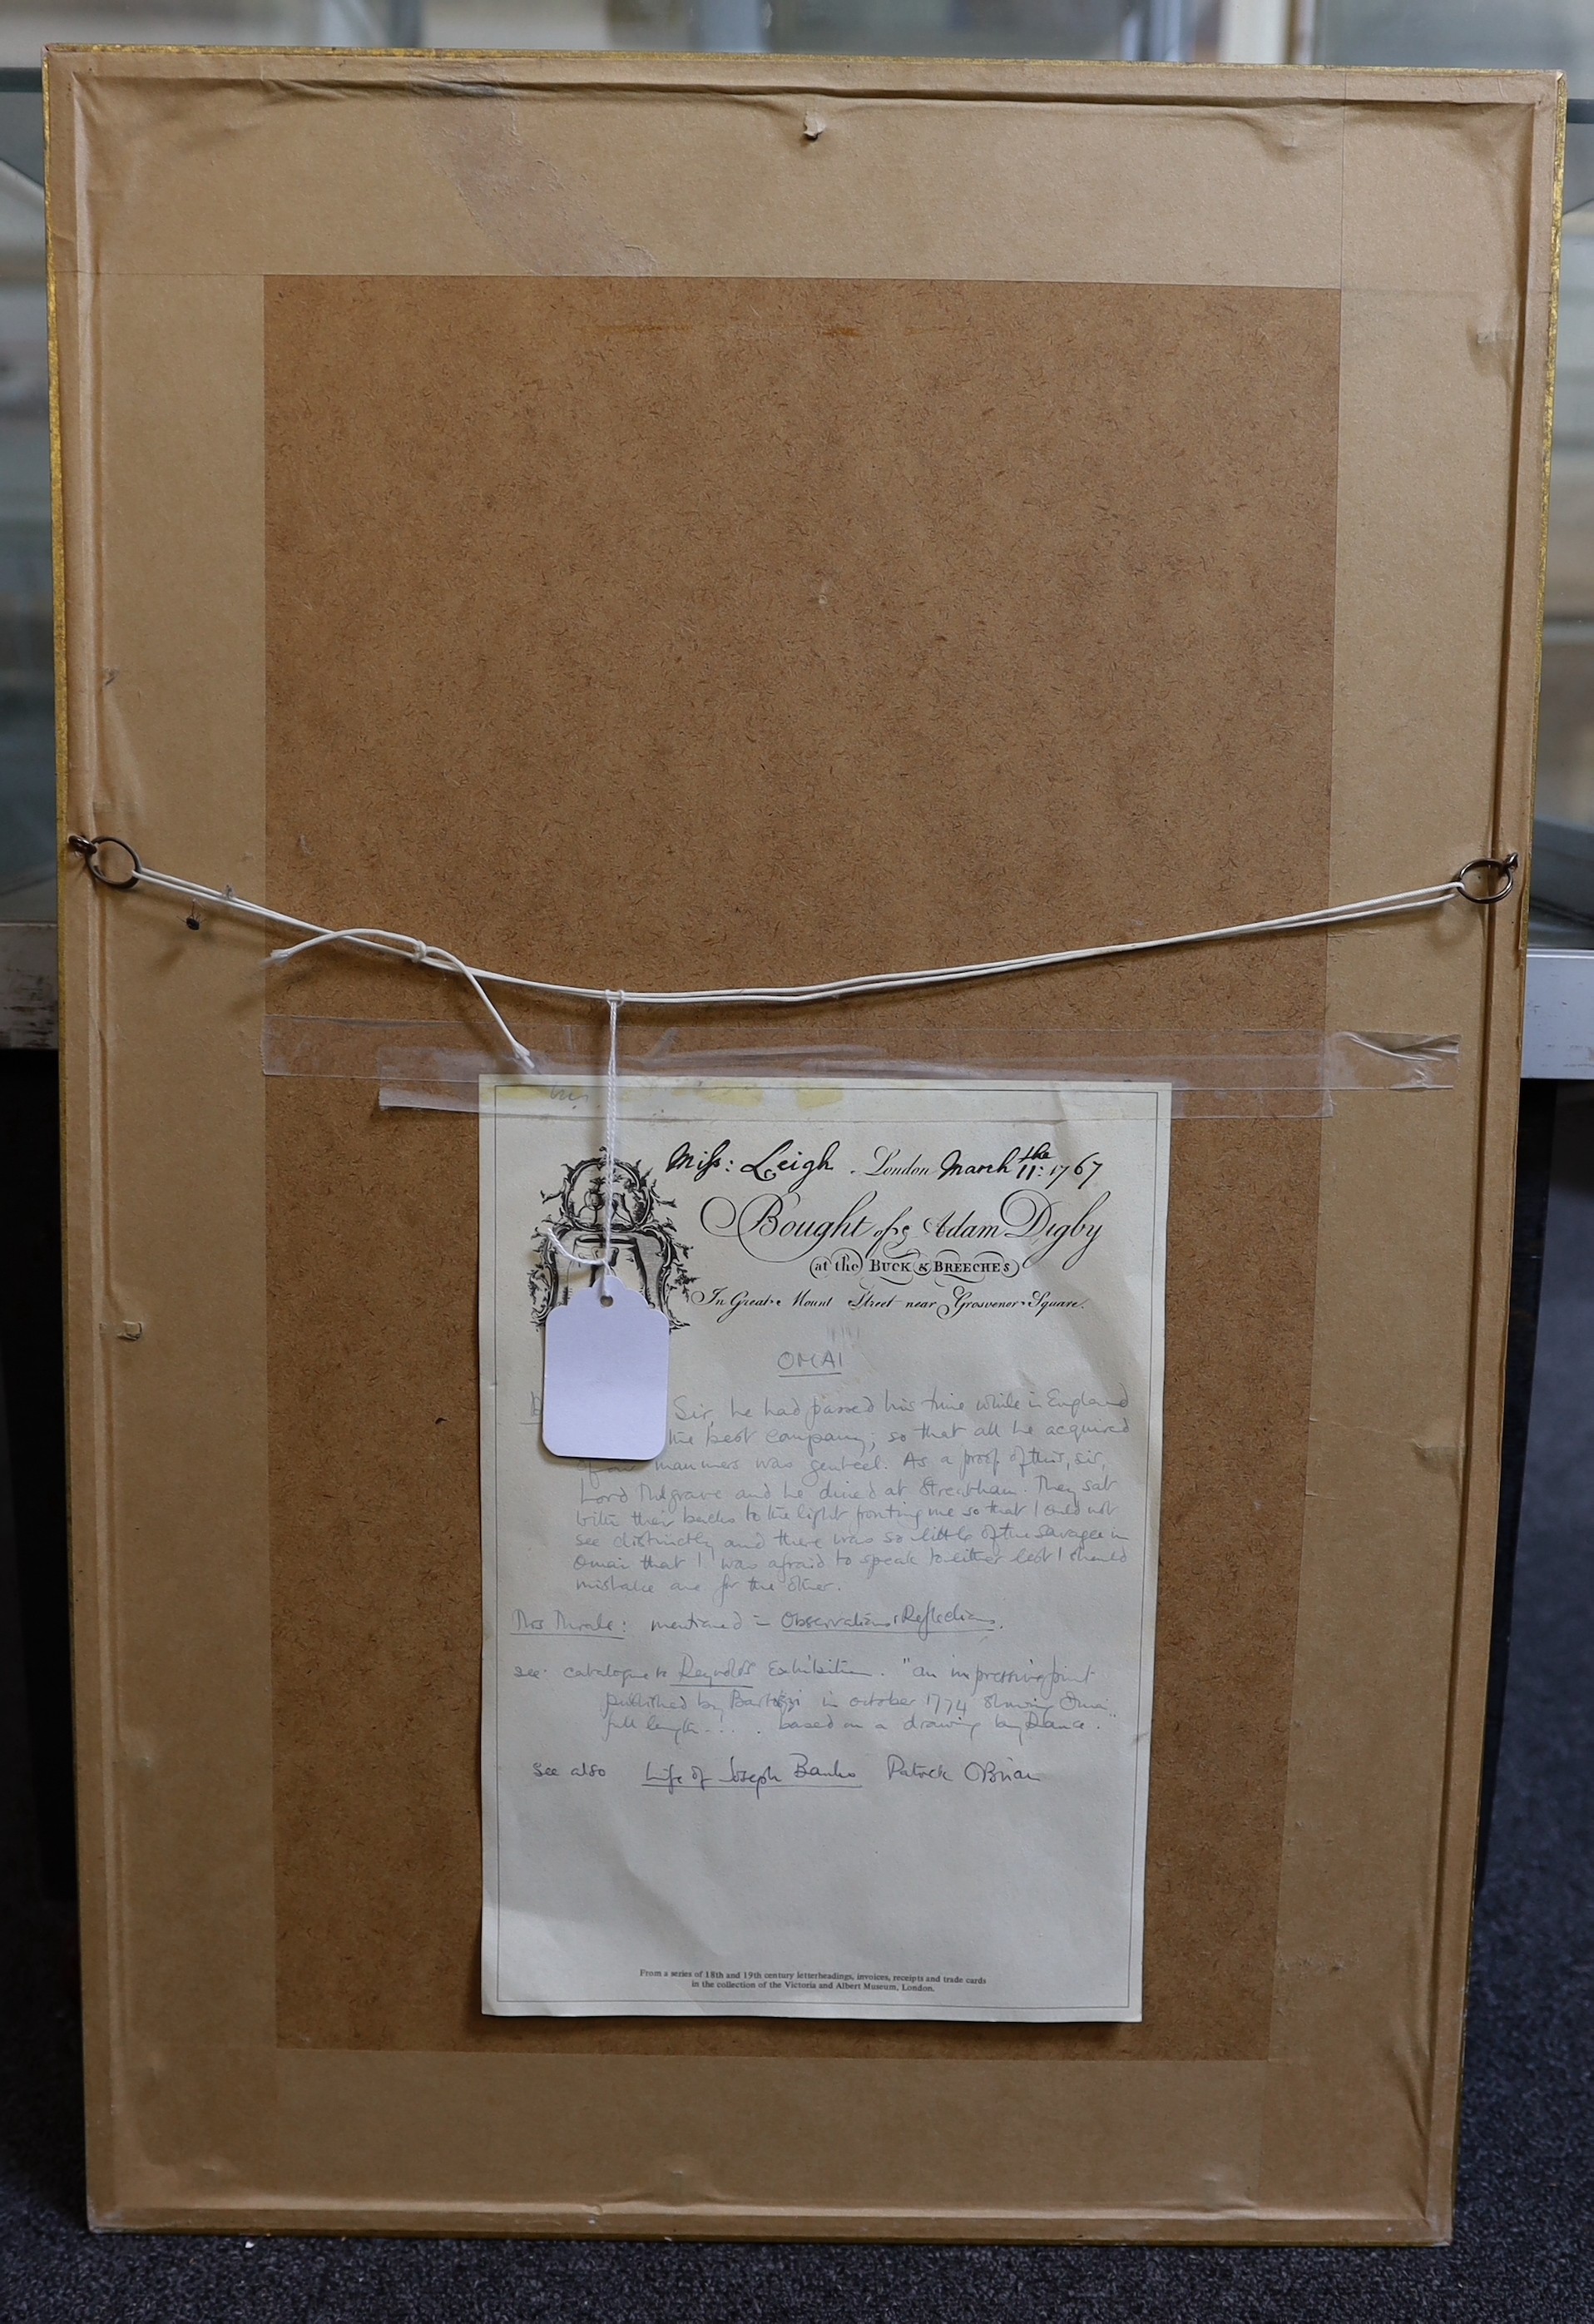 Miss: Leigh . London March 11:the 1767
Bought of Adam Digby
at the BUCK & BREECHES
In Great Mount Street near Grosvenor Square.
OMAI
Sir, he had passed his time while in England
the best company; so that all he acquired
of our manners was genteel. As a proof of this, sir,
Lord Mulgrave and he dined at Streatham. They sat
with their backs to the light fronting me so that I could not
see distinctly and there was so little of the savage in
Omai that I was afraid to speak to either lest I should
mistake one for the other.
Mrs Thrale: mentioned in Observations & Reflections.
see: catalogue to Reynolds Exhibition. "an impressive print
published by Bartolozzi in october 1774 showing Omai
full length ... based on a drawing by Dance."
see also Life of Joseph Banks Patrick O'Brian
From a series of 18th and 19th century letterheadings, invoices, receipts and trade cards
in the collection of the Victoria and Albert Museum, London.